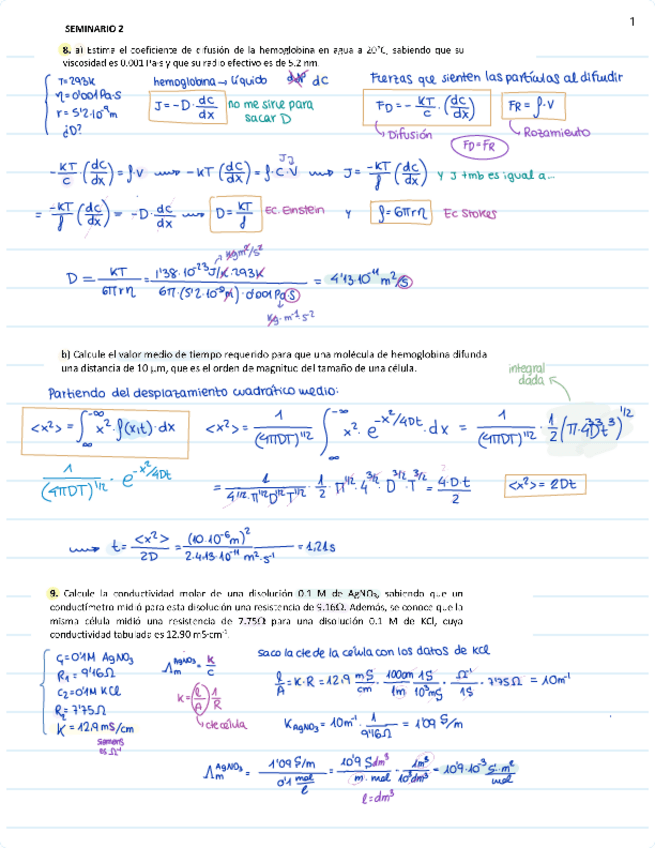 1
SEMINARIO 2
8. a) Estima el coeficiente de difusión de la hemoglobina en agua a 20°C, sabiendo que su
viscosidad es 0.001 Pa·s y que su radio efectivo es de 5.2 nm.
T=293K
η=0'001Pa·S
r=5'2·10⁻⁹m
¿D?
hemoglobina → líquido dC
J=-D·dc/dx
no me sirve para
sacar D
Fuerzas que sienten las partículas al difundir
FD=-KT/c·(dc/dx)
FR=f·v
Difusión
Rozamiento
FD=FR
-KT/c·(dc/dx)=f·v ⟿ -KT(dc/dx)=f·C·V ⟿ J=-KT/f(dc/dx) y J tmb es igual a...
=-KT/f(dc/dx)=-D·dc/dx ⟿ D=KT/f Ec. Einstein y f=6πrη Ec Stokes
kg m²/s²
D=KT/6πrη=1'38·10⁻²³J/K·293K/6π·(5'2·10⁻⁹m)·0'001Pa·S=4'13·10⁻¹¹m²/S
kg·m⁻¹s⁻²
b) Calcule el valor medio de tiempo requerido para que una molécula de hemoglobina difunda
una distancia de 10 μm, que es el orden de magnitud del tamaño de una célula.
integral
dada
Partiendo del desplazamiento cuadrático medio:
<x²>=∫x²·f(x,t)·dx <x²>=1/(4πDT)^1/2 ∫x²·e^-x²/4Dt·dx=1/(4πDT)^1/2·1/2(π·4³D³t³)^1/2
1/(4πDT)^1/2·e^-x²/4Dt
=1/4^1/2·π^1/2D^1/2T^1/2·1/2·π^1/2·4^3/2·D^3/2·T^3/2=4·D·t/2
<x²>=2Dt
⟿ t=<x²>/2D=(10·10⁻⁶m)²/2·4.13·10⁻¹¹m²·s⁻¹=1,21s
9. Calcule la conductividad molar de una disolución 0.1 M de AgNO₃, sabiendo que un
conductímetro midió para esta disolución una resistencia de 9.16Ω. Además, se conoce que la
misma célula midió una resistencia de 7.75Ω para una disolución 0.1 M de KCl, cuya
conductividad tabulada es 12.90 mS·cm⁻¹.
C₁=0'1M AgNO₃
R₁=9'16Ω
C₂=0'1M KCl
R₂=7'75Ω
K=12.9mS/cm
Siemens
es Ω⁻¹
Λm^AgNO₃=K/c
K=(l/A)1/R
cte célula
saco la cte de la célula con los datos de KCl
l/A=K·R=12'9 mS/cm·100cm/1m·1S/10³mS·Ω⁻¹/1S·7'75Ω=10m⁻¹
K AgNO₃=10m⁻¹·1/9'16Ω=1'09 S/m
Λm^AgNO₃=1'09 S/m/0'1 mol/l=10'9 S dm³/m·mol·1m³/10³dm³=10'9·10⁻³ S·m²/mol
l=dm³